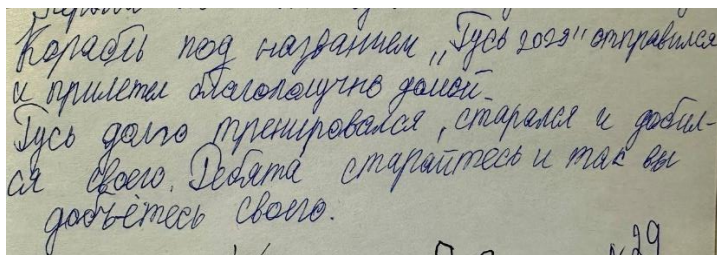 Корабль под названием „Гусь 2029" отправился
и прилетел благополучно домой.
Гусь долго тренировался, старался и добил-
ся своего. Ребята, старайтесь и так вы
добьётесь своего.